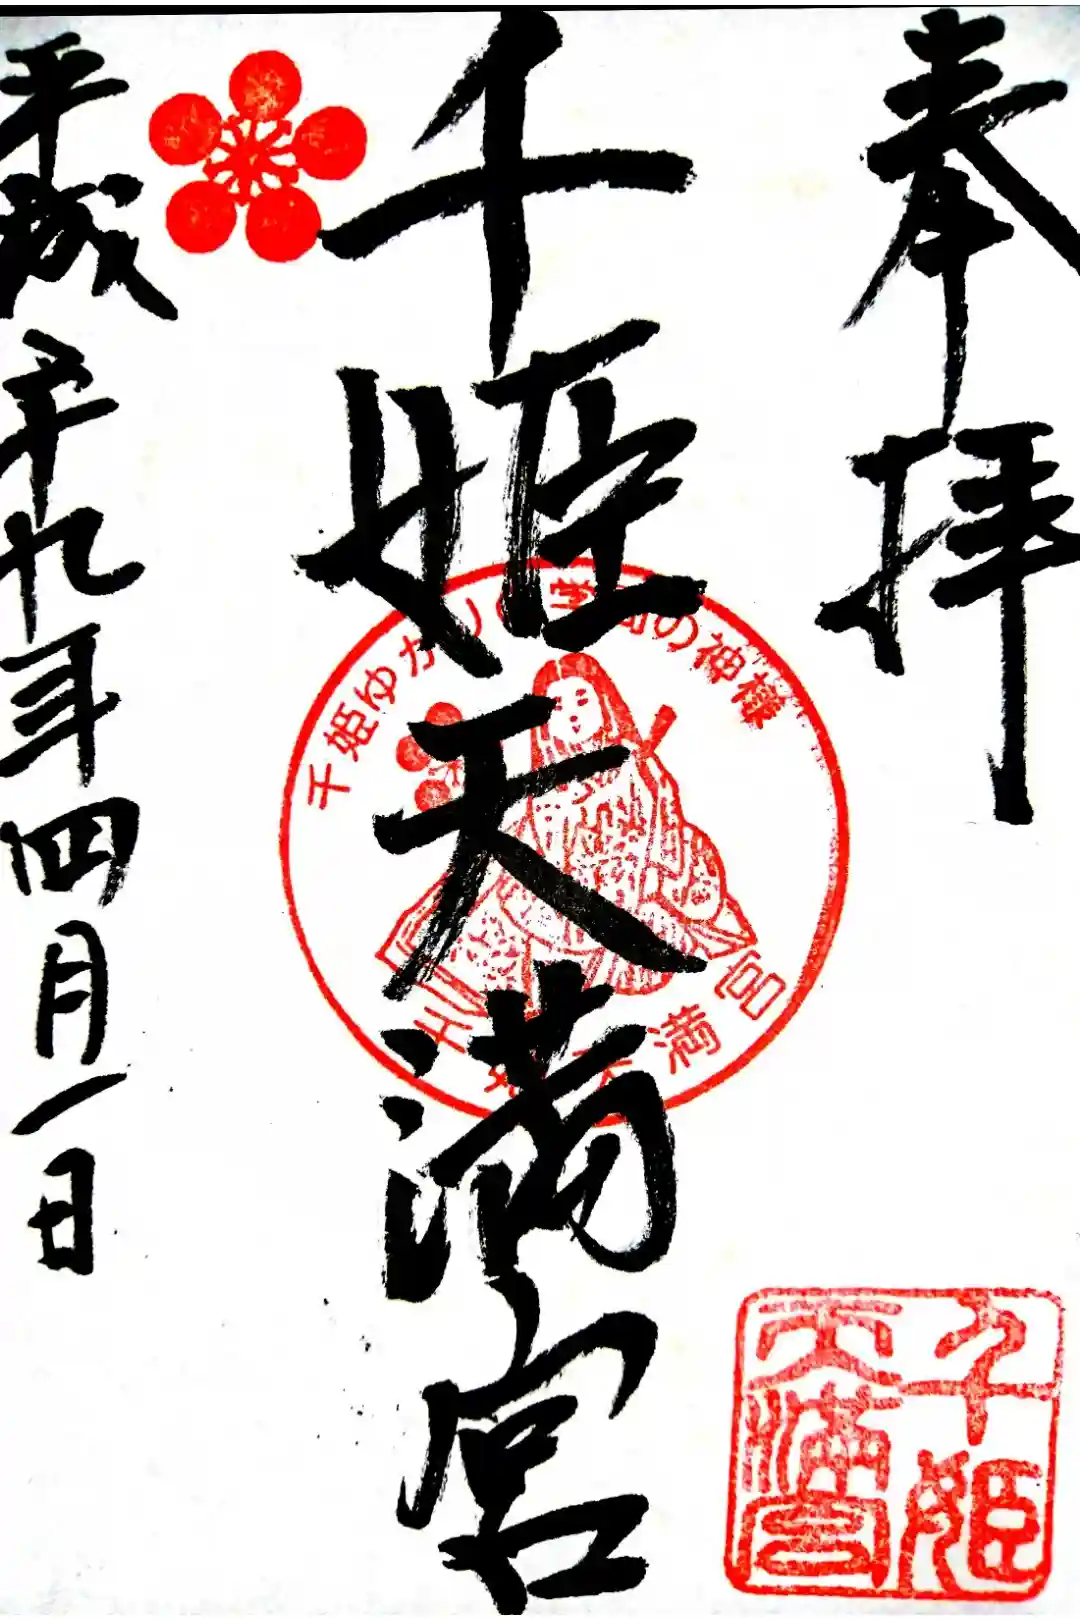 奉拝
千姫天満宮
平成二十九年四月一日
千姫ゆかりの学問の神様
千姫天満宮
千姫
天満宮